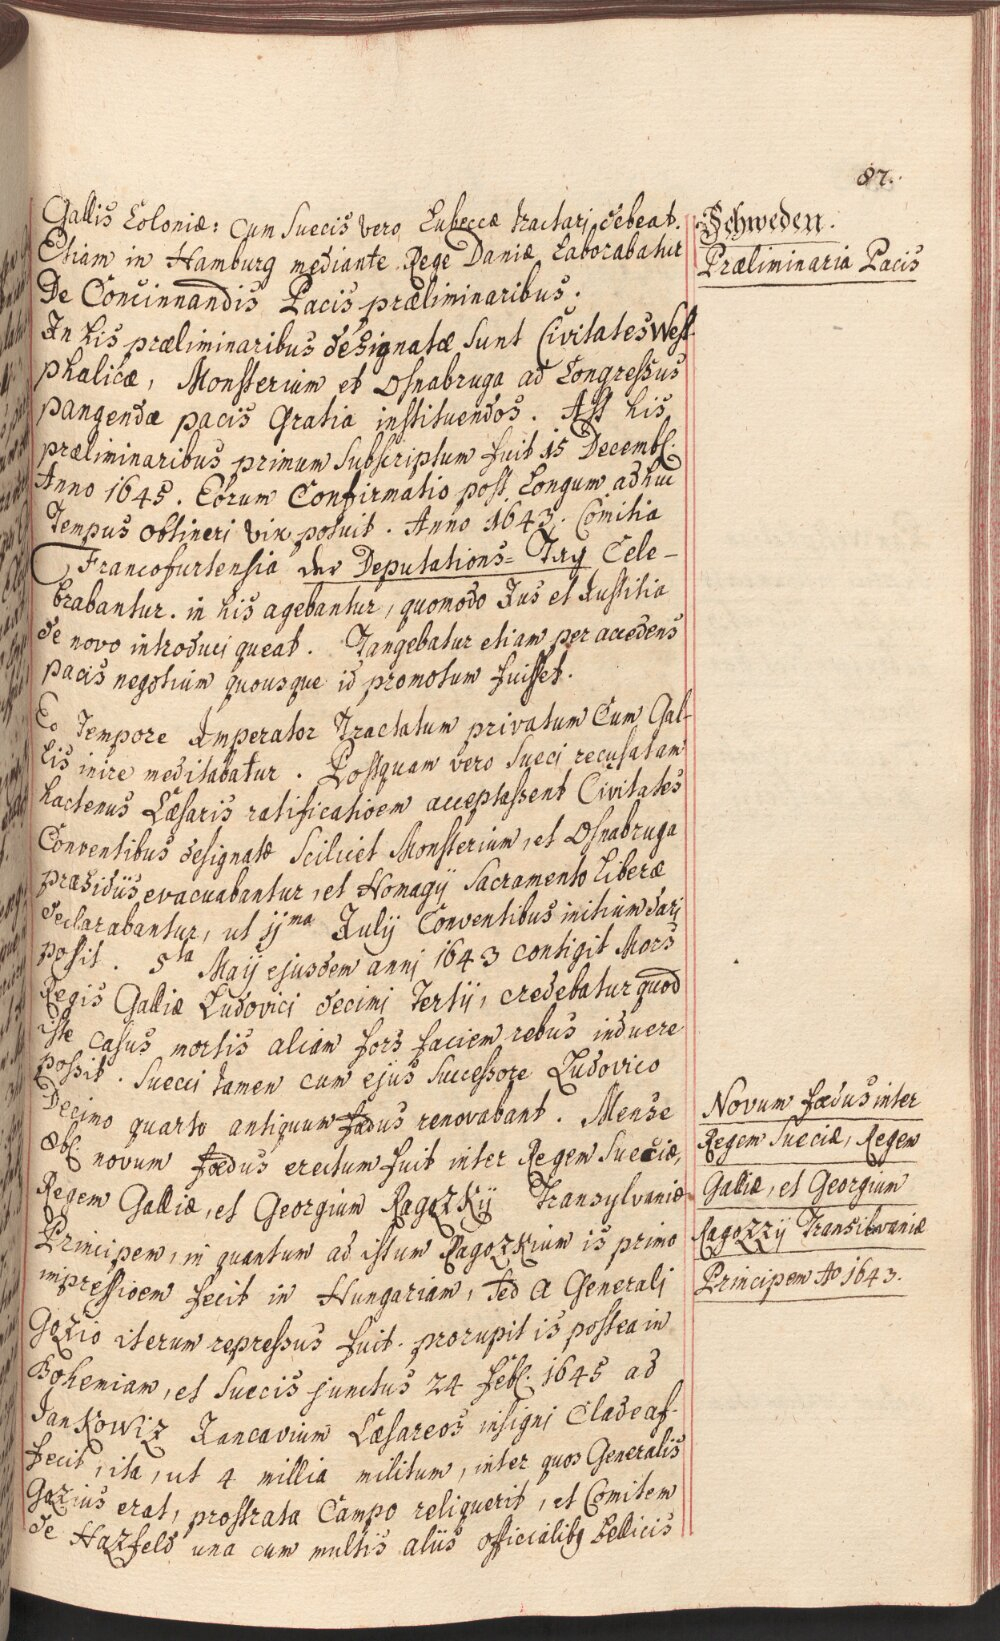 87.
Gallis Coloniæ: cum Suecis vero Lubeccæ tractari debeat.
Etiam in Hamburg mediante Rege Daniæ Laborabatur
De Concinnandis Pacis præliminaribus.
In his præliminaribus designatæ sunt Civitates West-
phalicæ, Monsterium et Osnabruga ad Congressus
pangendæ pacis gratia instituendos. Ast his
præliminaribus primum subscriptum fuit 15 Decembl.
Anno 1645. Eorum Confirmatio post Longum adhuc
Tempus obtineri vix potuit. Anno 1643. Comitia
Francofurtensia der Deputations=Tag Cele-
brabantur. in his agebantur, quomodo Jus et Justitia
de novo introduci queat. Tangebatur etiam per accedens
pacis negotium quousque id promotum fuisset.
Eo Tempore Imperator Tractatum privatum Cum Gal-
lis inire meditabatur. Postquam vero Sueci recusatam
hactenus Cæsaris ratificatioem acceptassent Civitates
Conventibus designatæ scilicet Monsterium, et Osnabruga
præsidiis evacuabantur, et Homagij Sacramento Liberæ
declarabantur, ut 11ma Julij Conventibus initium dari
possit. 5ta Maij ejusdem anni 1643 contigit Mors
Regis Galliæ Ludovici decimi Tertij, credebatur quod
iste casus mortis aliam fors faciem rebus induere
possit. Sueci tamen cum ejus Successore Ludovico
Decimo quarto antiquum fœdus renovabant. Mense
8bl. novum fœdus erectum fuit inter Regem Sueciæ,
Regem Galliæ, et Georgium Ragozkij Transylvaniæ
Principem, in quantum ad istum Ragozkium is primo
impressioem fecit in Hungariam, sed a Generali
Gozio iterum repressus fuit. prorupit is postea in
Bohemiam, et Suecis junctus 24 Febl. 1645 ad
Jankowiz Jancavium Cæsareos insigni Clade af-
fecit, ita, ut 4 millia militum, inter quos Generalis
Gozius erat, prostrata Campo reliquerit, et Comitem
de Hazfeld una cum multis aliis officialibq Bellicis
Schweden.
Præliminaria Pacis
Novum fœdus inter
Regem Sueciæ, Regem
Galliæ, et Georgium
Ragozzij Transilvaniæ
Principem Ao 1643.